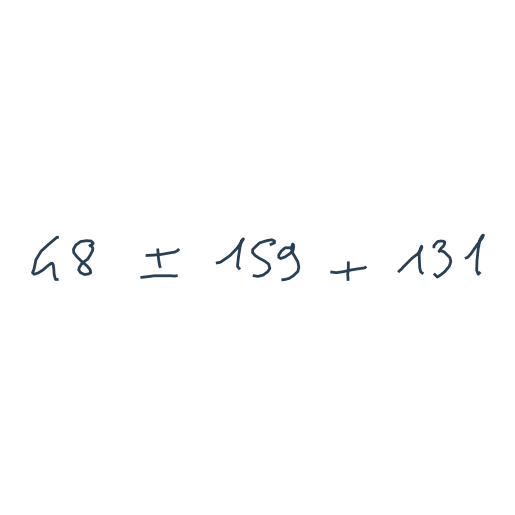 48 ± 159 + 131